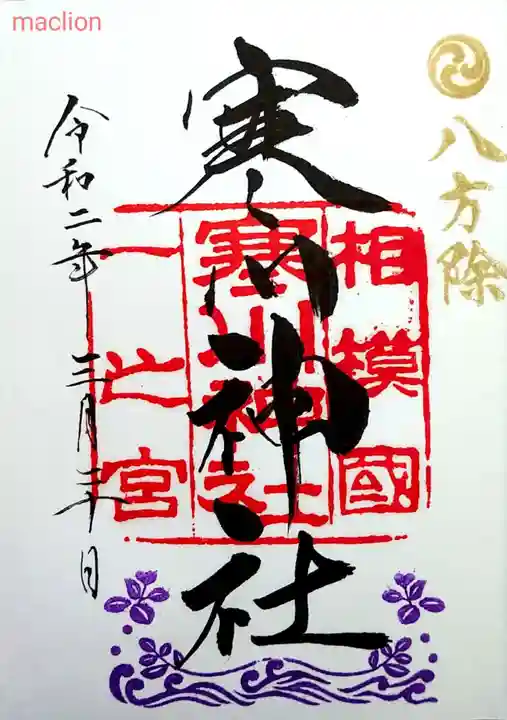 maclion
八方除
相模國
寒川神社
一之宮
寒川神社
令和二年三月二十日